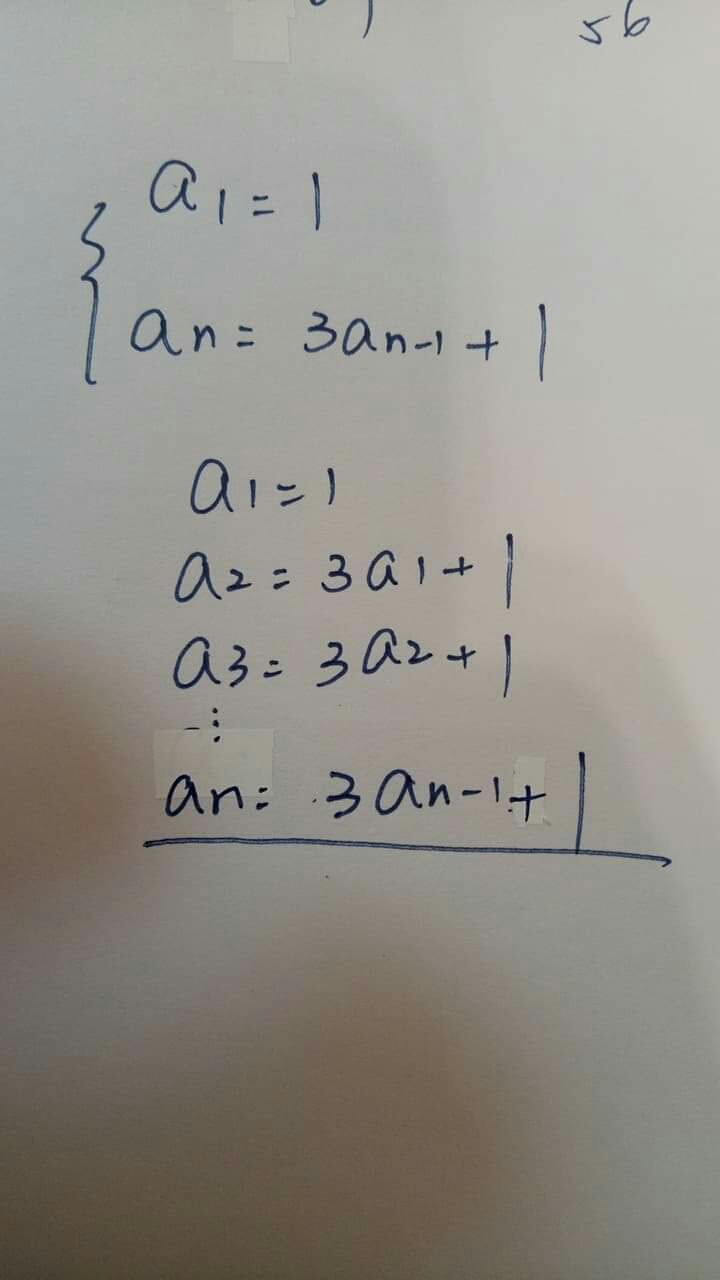 56
a1 = 1
an = 3an-1 + 1
a1 = 1
a2 = 3a1 + 1
a3 = 3a2 + 1
⋮
an = 3an-1 + 1